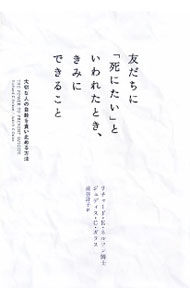 友だちに
「死にたい」と
いわれたとき、
きみに
できること
大切な人の自殺を食い止める方法
THE POWER TO PREVENT SUICIDE
Richard E.Nelson, Judith C.Galas
リチャード・E・ネルソン博士
ジュディス・C・ガラス
浦谷計子 訳